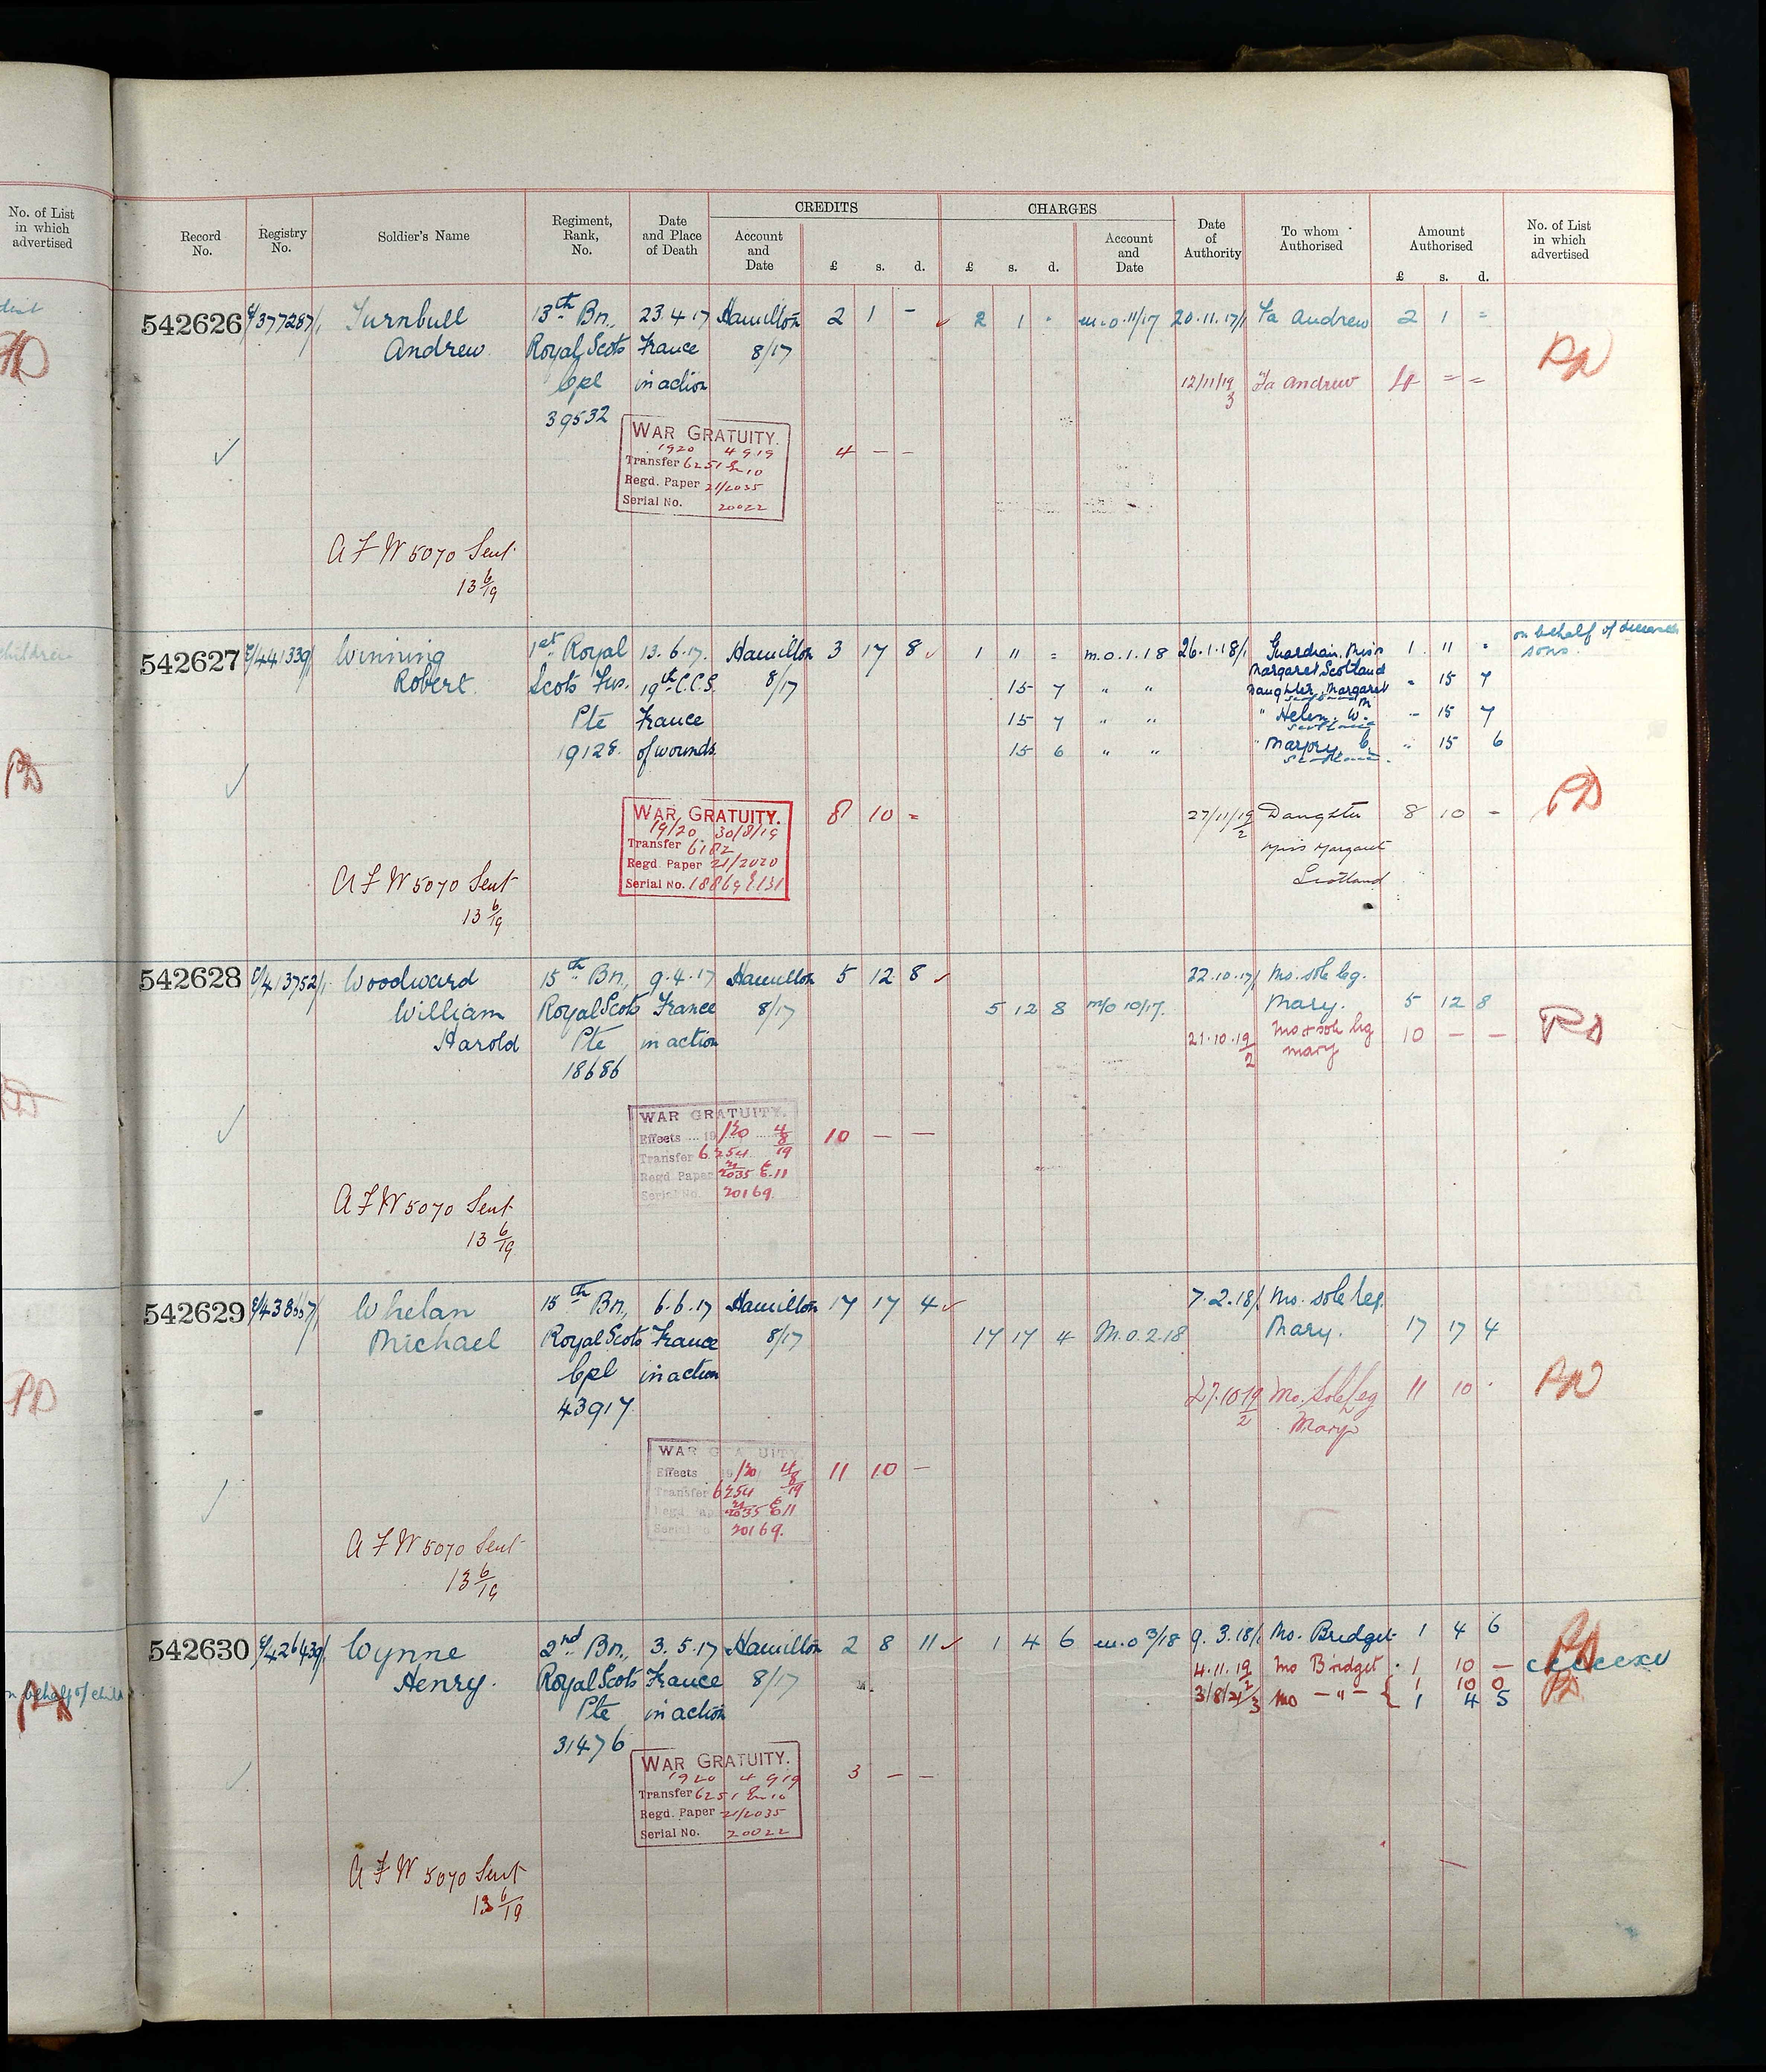 No. of List
in which
advertised
Record
No.
Registry
No.
Soldier's Name
Regiment,
Rank,
No.
Date
and Place
of Death
CREDITS
Account
and
Date
£ s. d.
CHARGES
£ s. d.
Account
and
Date
Date
of
Authority
To whom
Authorised
Amount
Authorised
£ s. d.
No. of List
in which
advertised
542626 E/377287/1 Turnbull 13th Bn., 23.4.17 Hamilton 2 1 - 2 1 - m.o.11/17 20.11.17/1 Fa Andrew 2 1 =
Andrew Royal Scots France 8/17
Cpl in action 12/11/19 3 Fa Andrew 4 = =
39532
WAR GRATUITY.
1920 4 9 19 4 - -
Transfer 6251 E 10
Regd. Paper 21/2035
Serial No. 20022
A F W 5070 Sent
13 6/19
542627 E/441339/1 Winning 1st Royal 13.6.17. Hamilton 3 17 8 1 " = m.o.1.18 26.1.18/1 Guardian. Miss 1 " "
on behalf of deceased
sons.
Robert Scots Fus. 19th C.C.S. 8/17 15 7 " " Margaret Scotland
Daughter, Margaret - 15 7
Pte France 15 7 " " " Helen W. M - 15 7
Scotland
19128. of wounds 15 6 " " " Marjory. C. " 15 6
Scotland.
WAR GRATUITY. 8 10 = 27/11/19 2 Daughter 8 10 -
19/20 30/8/19 Miss Margaret
Transfer 6182 Scotland
Regd. Paper 21/2020
Serial No. 18869 E131
A F W 5070 Sent
13 6/19
542628 E/413752/1 Woodward 15th Bn., 9.4.17 Hamilton 5 12 8 22.10.17/1 Mo. sole leg.
William Royal Scots France 8/17 5 12 8 m/o 10/17. Mary. 5 12 8
Harold Pte in action 21.10.19 2 Mo & sole leg 10 - -
Mary
18686
WAR GRATUITY.
Effects 19/20 4/8/19 10 - -
Transfer 6254
Regd Paper 21/2035 E.11
Serial No. 20169.
A F W 5070 Sent
13 6/19
542629 E/438557/1 Whelan 15th Bn., 6.6.17 Hamilton 17 17 4 7.2.18/1 Mo. sole leg.
Michael Royal Scots France 8/17 17 17 4 M.O.2.18 Mary. 17 17 4
Cpl in action 27.10.19 2 Mo. Sole leg 11 10 -
43917. Mary
WAR G A UITY
Effects 19/20 4/8/19 11 10 -
Transfer 6254
Regd. Paper 21/2035 E11
Serial No 20169.
A F W 5070 Sent
13 6/19
542630 E/426439/1 Wynne 2nd Bn., 3.5.17 Hamilton 2 8 11 1 4 6 m.o 3/18 9.3.18/1 Mo. Bridget 1 4 6
Henry. Royal Scots France 8/17 4.11.19 2 Mo Bridget 1 10 -
3/8/21/3 Mo - " - { 1 10 0
1 4 5
Pte in action
31476
WAR GRATUITY.
1920 4 9 19 3 - -
Transfer 6251 E 10
Regd. Paper 21/2035
Serial No. 20022
A F W 5070 Sent
13 6/19